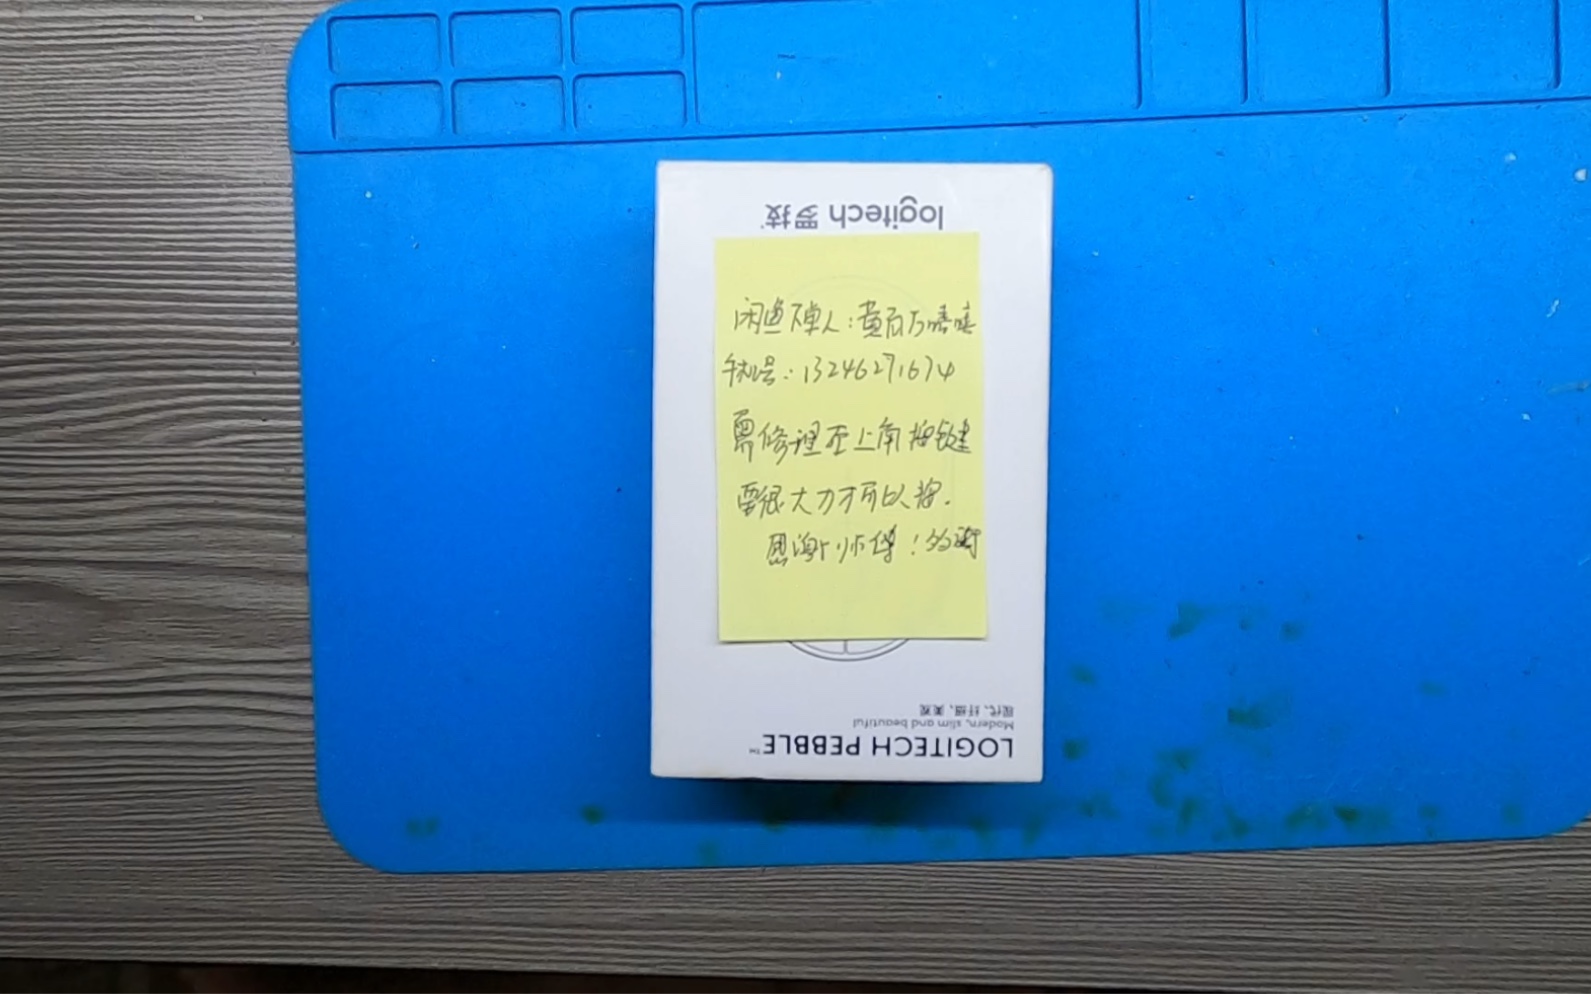 logitech 罗技
闲鱼下单人：黄百万嘻嘻
手机号：13246271674
需修理左上角按键
要很大力才可以按.
感谢师傅！多谢
现代、纤细、美观
Modern, slim and beautiful
LOGITECH PEBBLE™